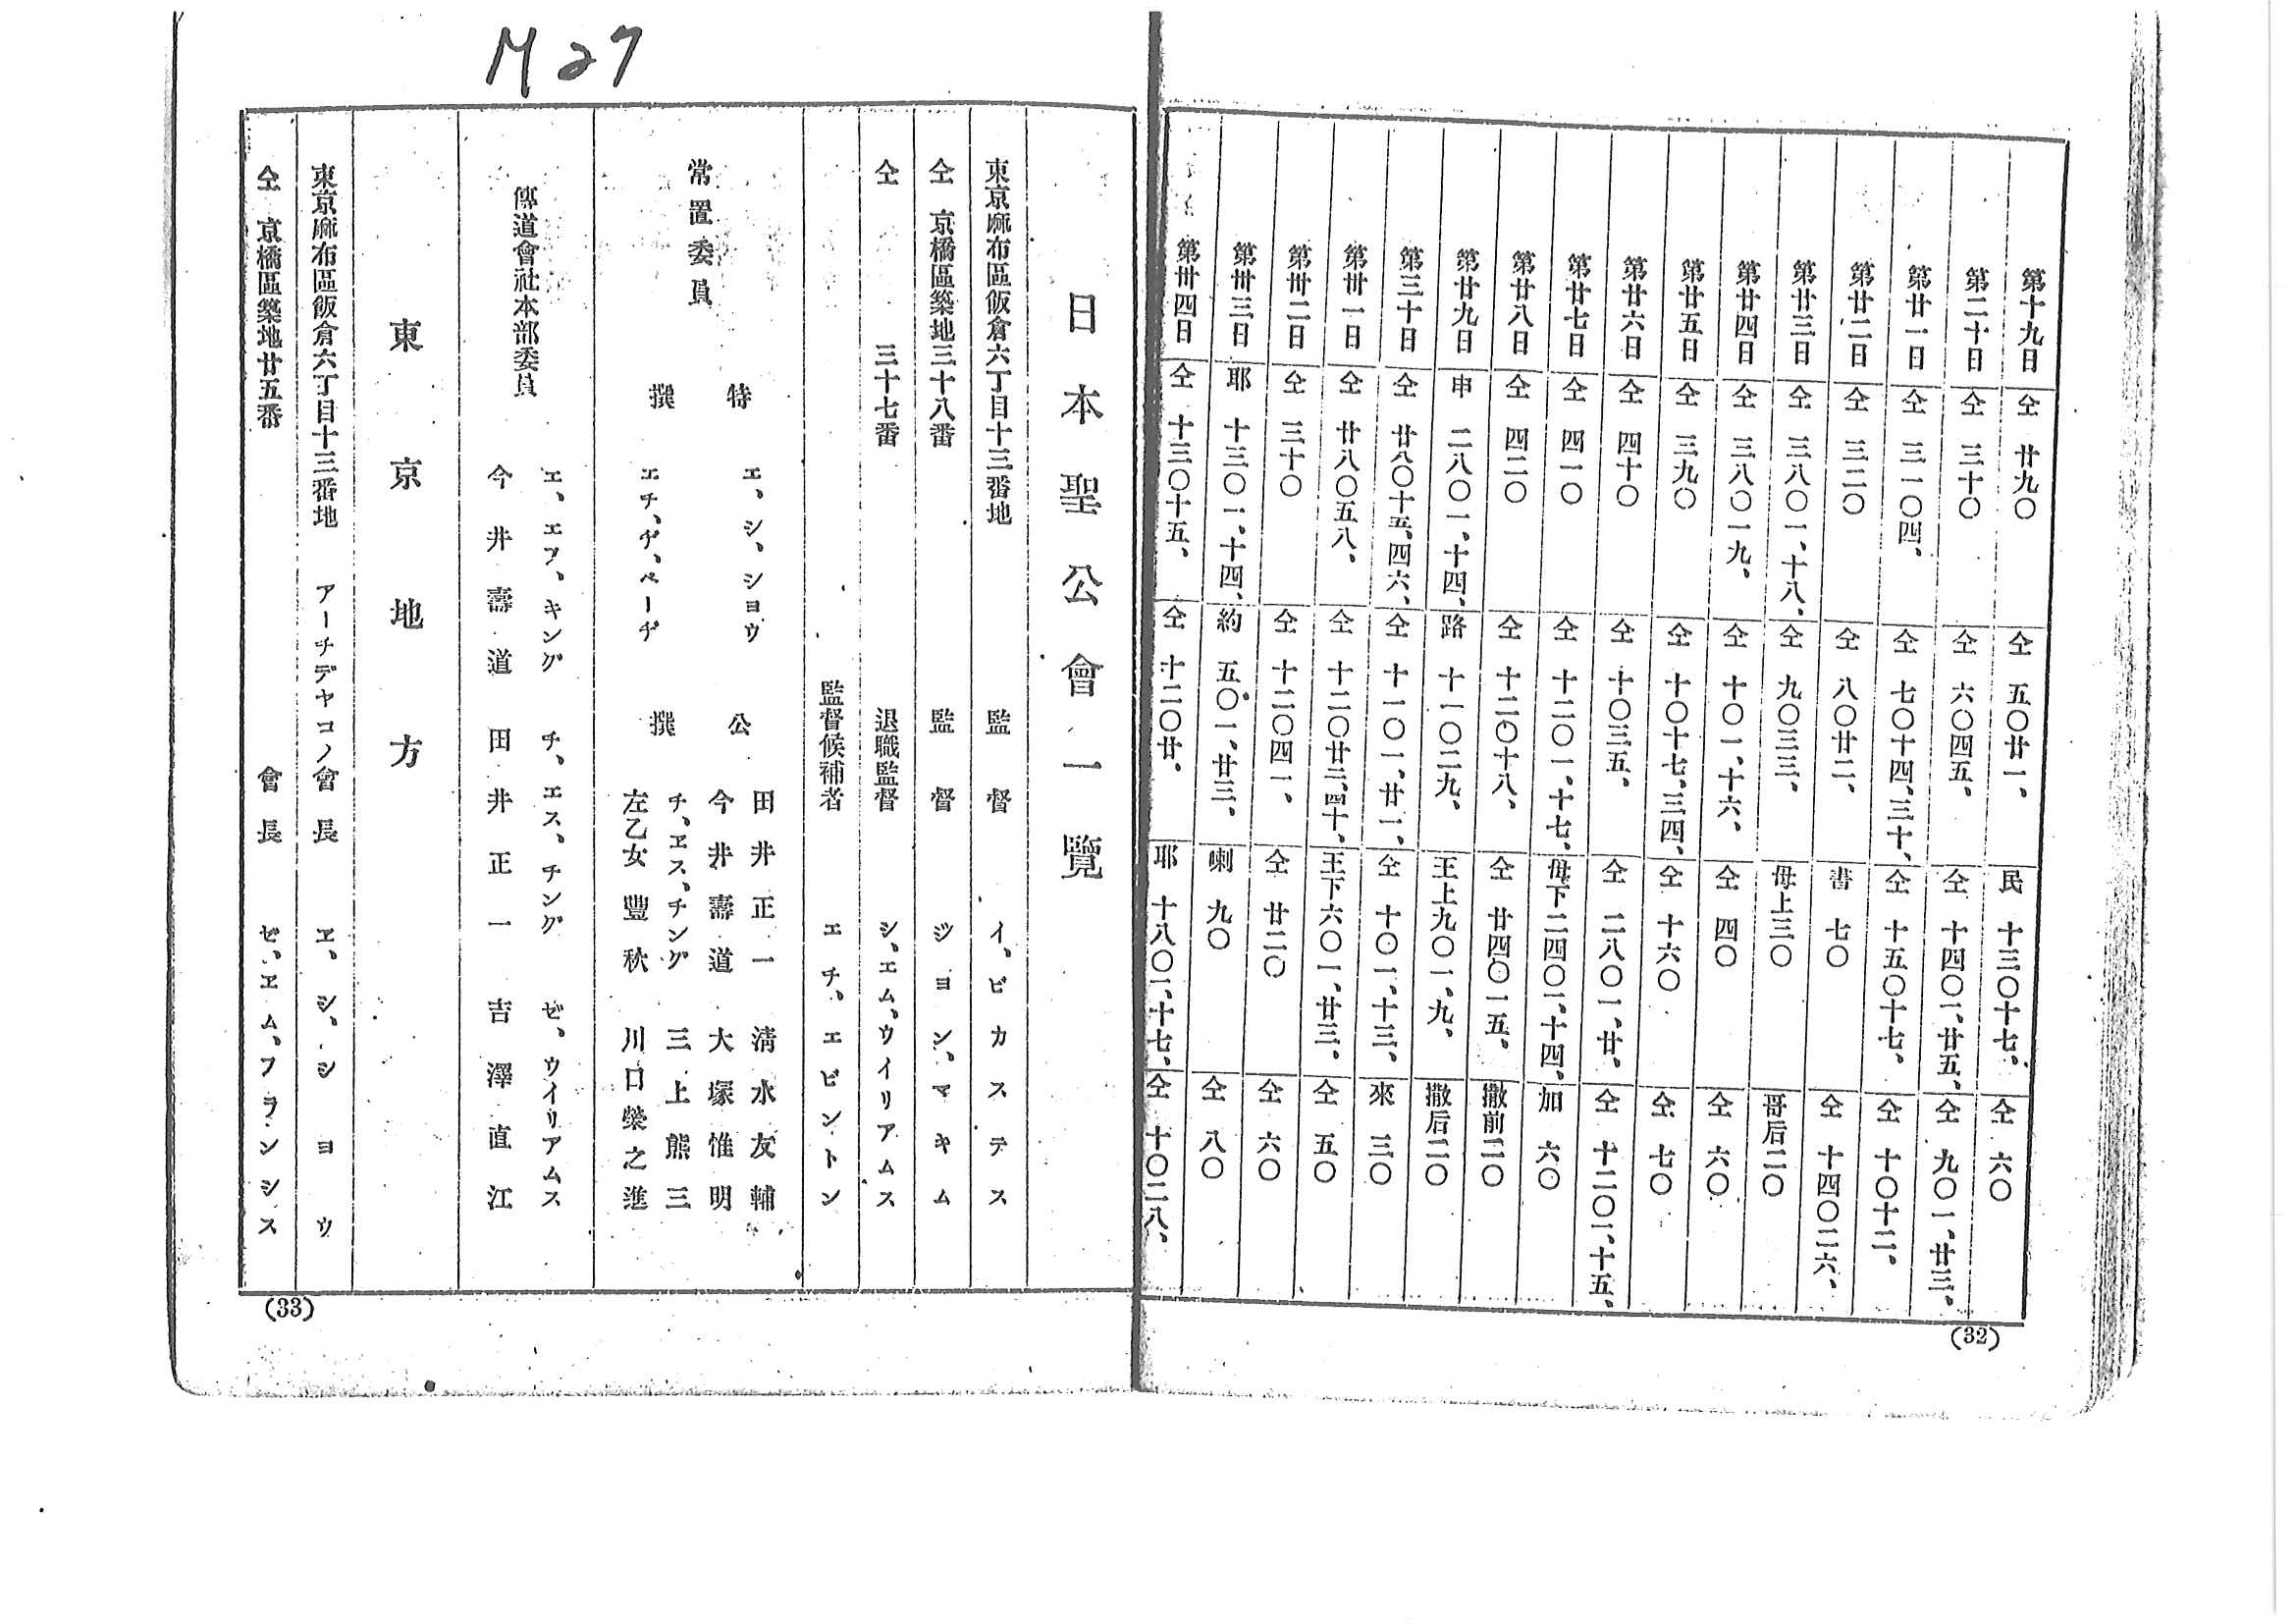 M27
第十九日 仝 廿九〇 仝 五〇廿一、 民 十三〇十七、 仝 六〇
第二十日 仝 三十〇 仝 六〇四五、 仝 十四〇一、廿五、 仝 九〇一、廿三、
第廿一日 仝 三一〇四、 仝 七〇十四、三十、 仝 十五〇十七、 仝 十〇十二、
第廿二日 仝 三二〇 仝 八〇廿二、 書 七〇 仝 十四〇二六、
第廿三日 仝 三八〇一、十八、 仝 九〇三三、 母上三〇 哥后二〇
第廿四日 仝 三八〇一九、 仝 十〇一、十六、 仝 四〇 仝 六〇
第廿五日 仝 三九〇 仝 十〇十七、三四、 仝 十六〇 仝 七〇
第廿六日 仝 四十〇 仝 十〇三五、 仝 二八〇一、廿、 仝 十二〇一、十五、
第廿七日 仝 四一〇 仝 十二〇一、十七、 母下二四〇一、十四、 加 六〇
第廿八日 仝 四二〇 仝 十二〇十八、 仝 廿四〇一五、 撒前二〇
第廿九日 申 二八〇一、十四、 路 十一〇二九、 王上九〇一、九、 撒后二〇
第三十日 仝 廿八〇十五、四六、 仝 十一〇一、廿一、 仝 十〇一、十三、 來 三〇
第卅一日 仝 廿八〇五八、 仝 十二〇廿三、四十、 王下六〇一、廿三、 仝 五〇
第卅二日 仝 三十〇 仝 十二〇四一、 仝 廿二〇 仝 六〇
第卅三日 耶 十三〇一、十四、 約 五〇一、廿三、 喇 九〇 仝 八〇
第卅四日 仝 十三〇十五、 仝 十二〇廿、 耶 十八〇一、十七、 仝 十〇二八、
(32)
日本聖公會一覽
東京麻布區飯倉六丁目十三番地 監督 イ、ビカステス
仝 京橋區築地三十八番 監督 ジヨン、マキム
仝 三十七番 退職監督 シ、エム、ウイリアムス
監督候補者 エチ、エビントン
常置委員
特撰
エ、シ、シヨウ
エチ、ヂ、ペーヂ
公撰
田井正一 淸水友輔
今井壽道 大塚惟明
チ、エス、チング 三上熊三
左乙女豐秋 川口榮之進
傳道會社本部委員
エ、エフ、キング チ、エス、チング ゼ、ウイリアムス
今井壽道 田井正一 吉澤直江
東京地方
東京麻布區飯倉六丁目十三番地 アーチデヤコノ會長 エ、シ、シヨウ
仝 京橋區築地廿五番 會長 ゼ、エム、フランシス
(33)